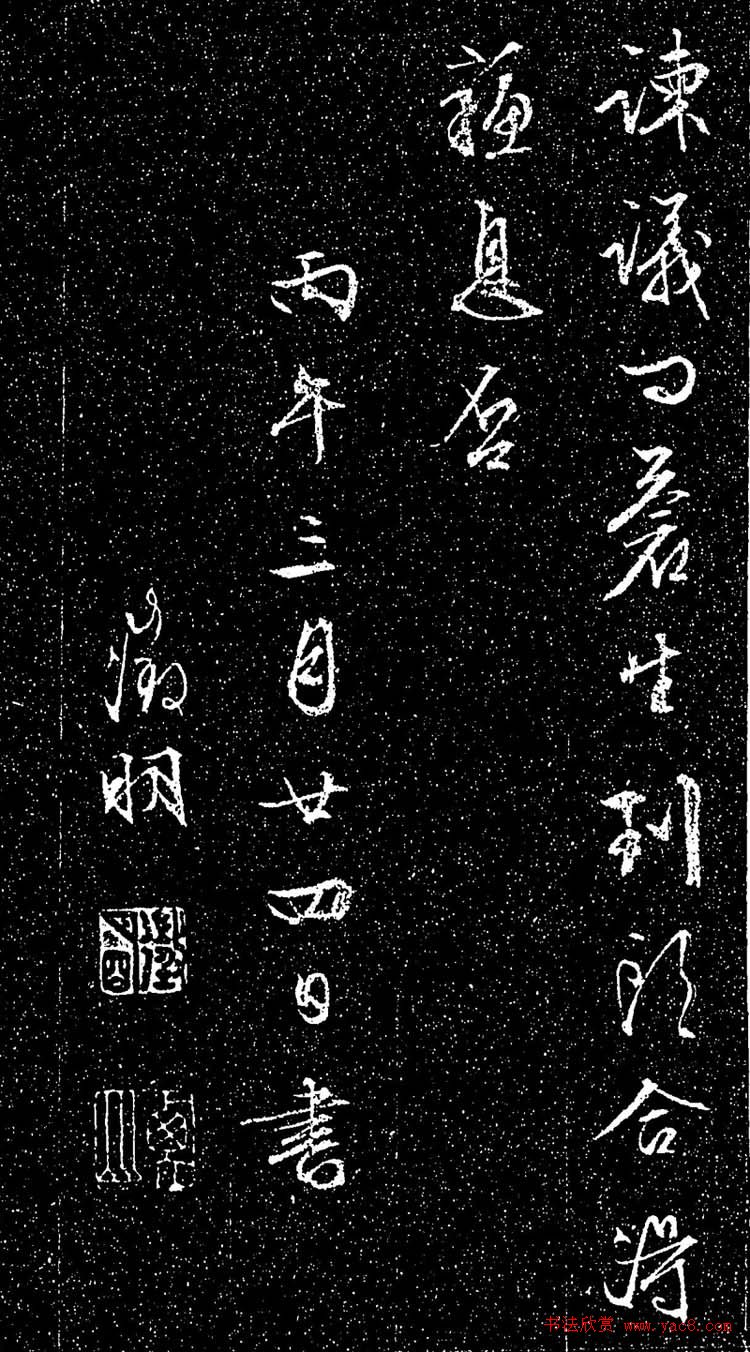 諫議問蒼生到頭合得
蘇息否
丙午三月廿四日書
徵明
书法欣赏 www.yac8.com